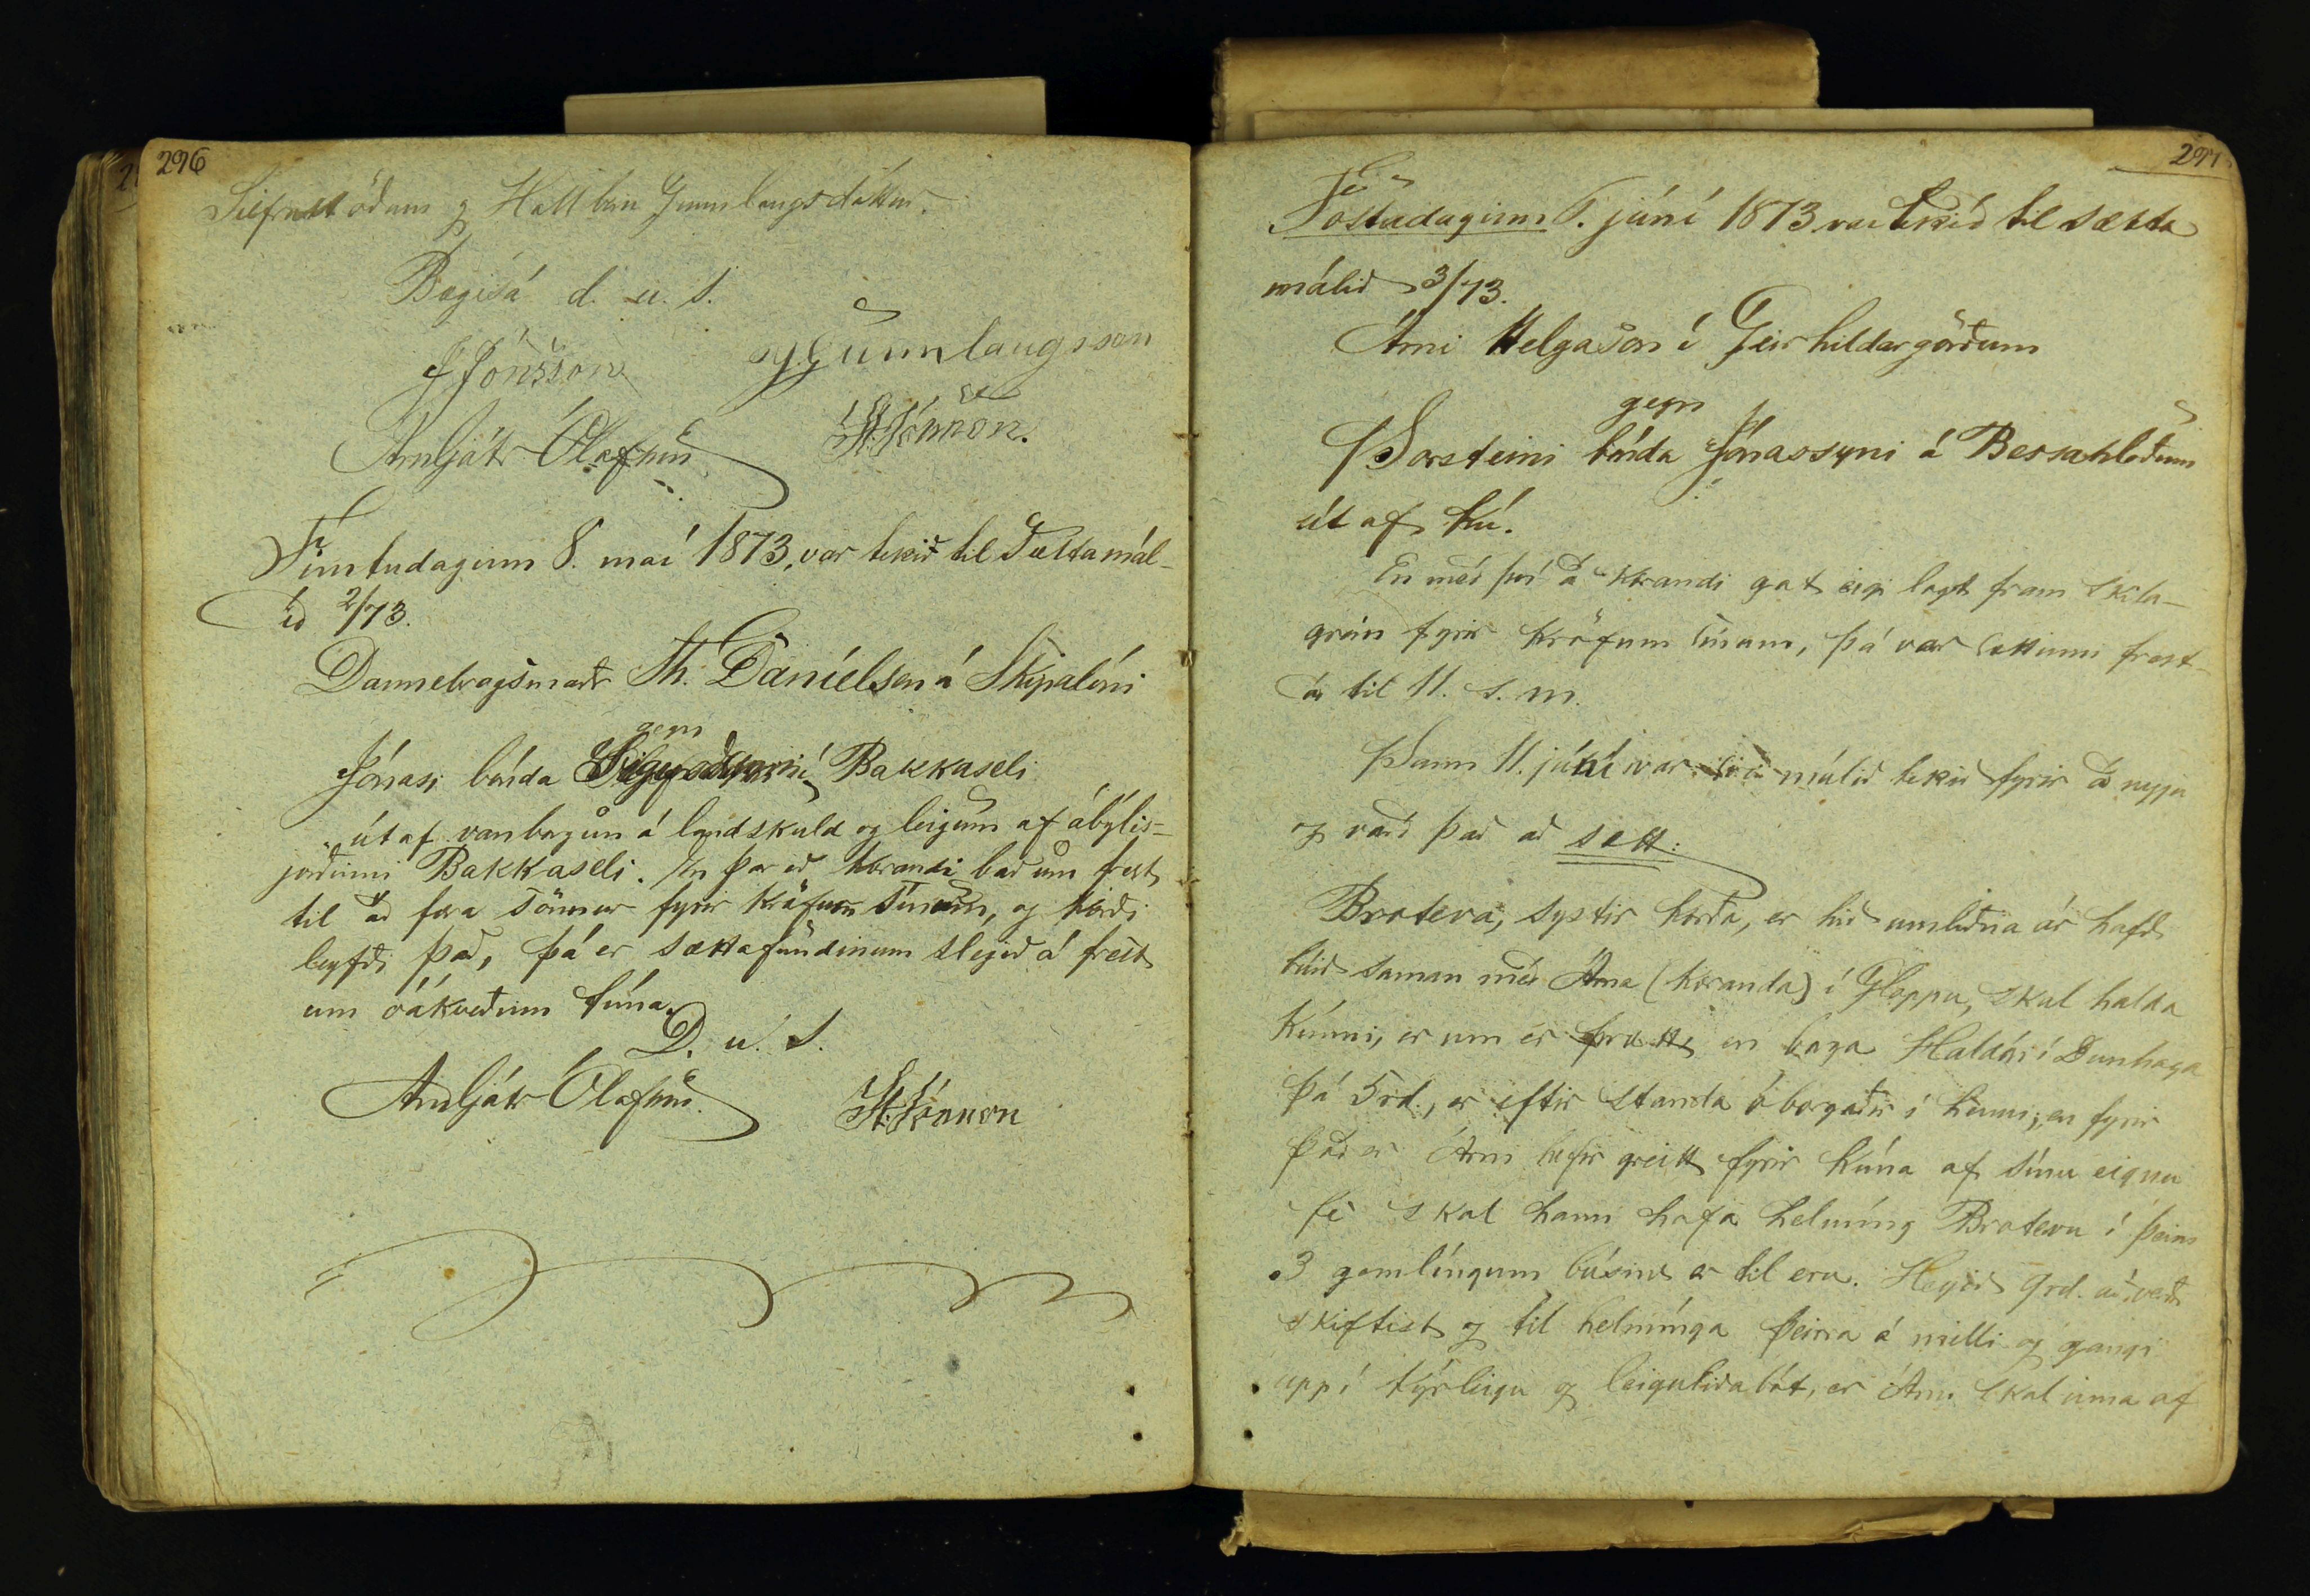 296
Silfrastöðum og Hallbera Gunnlaugsdóttur.
Bægisá d. u. s.
J Jónsson GGunnlaugsson
Arnljótr Ólafsson St. Jónsson.
Fimtudaginn 8. maí 1873, var tekið til sáttamál-
ið 2/73.
Dannebrogsmaðr Th. Daníelsen á Skipalóni
gegn
Jónasi bónda í Bakkaseli
út af vanborgun á landskuld og leigum af ábýlis-
jörðinni Bakkaseli. En þar eð kærandi bað um frest
til að færa sönnur fyrir kröfum sínum, og kærði
leyfði það, þá er sættafundinum slegið á frest
um óákveðinn tíma.
D. u. s.
Arnljótr Ólafsson. St. Jónsson
297
Föstudaginn 6. júní 1873 var tekið til sætta
málið 3/73.
Árni Helgason í Geirhildargörðum
gegn
Þorsteini bónda Jónassyni á Bessahlöðum
út af kú.
En með því að kærandi gat eigi lagt fram skila-
grein fyrir kröfum sínum, þá var sættinni frest-
að til 11. s. m.
Þann 11. júní var málið tekið fyrir að nýju
og varð það að sætt:
Broteva, systir kærða, er hið umliðna ár hafði
búið saman með Árna (kæranda) í Gloppu, skal halda
kúnni, er um er þrætt, en borga Haldóri í Dunhaga
þá 5rd., er eftir standa óborgaðir í henni; en fyrir
það er Árni hefir greitt fyrir kúna af sínu eignu
fé skal hann hafa helmíng Brotevu í þeim
3 gemlíngum búsins er til eru. Heyið 9rd. að verði
skiftist og til helmínga þeirra á milli og gangi
uppí kýrleigu og leiguliðabót, er Árni skal inna af